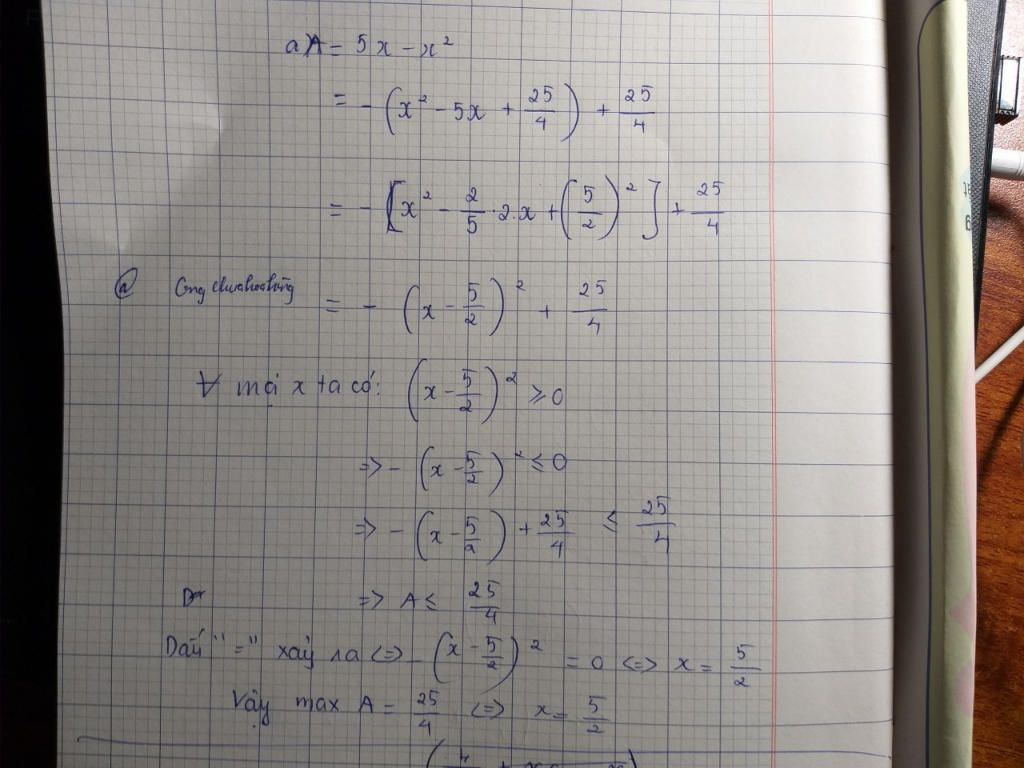 a) A = 5x - x²
= - (x² - 5x + 25/4) + 25/4
= - [x² - 2/5 · 2·x + (5/2)²] + 25/4
@ Congchuahoabang = - (x - 5/2)² + 25/4
∀ mọi x ta có: (x - 5/2)² ≥ 0
=> - (x - 5/2)² ≤ 0
=> - (x - 5/2) + 25/4 ≤ 25/4
=> A ≤ 25/4
Dấu "=" xảy ra <=> - (x - 5/2)² = 0 <=> x = 5/2
Vậy max A = 25/4 <=> x = 5/2